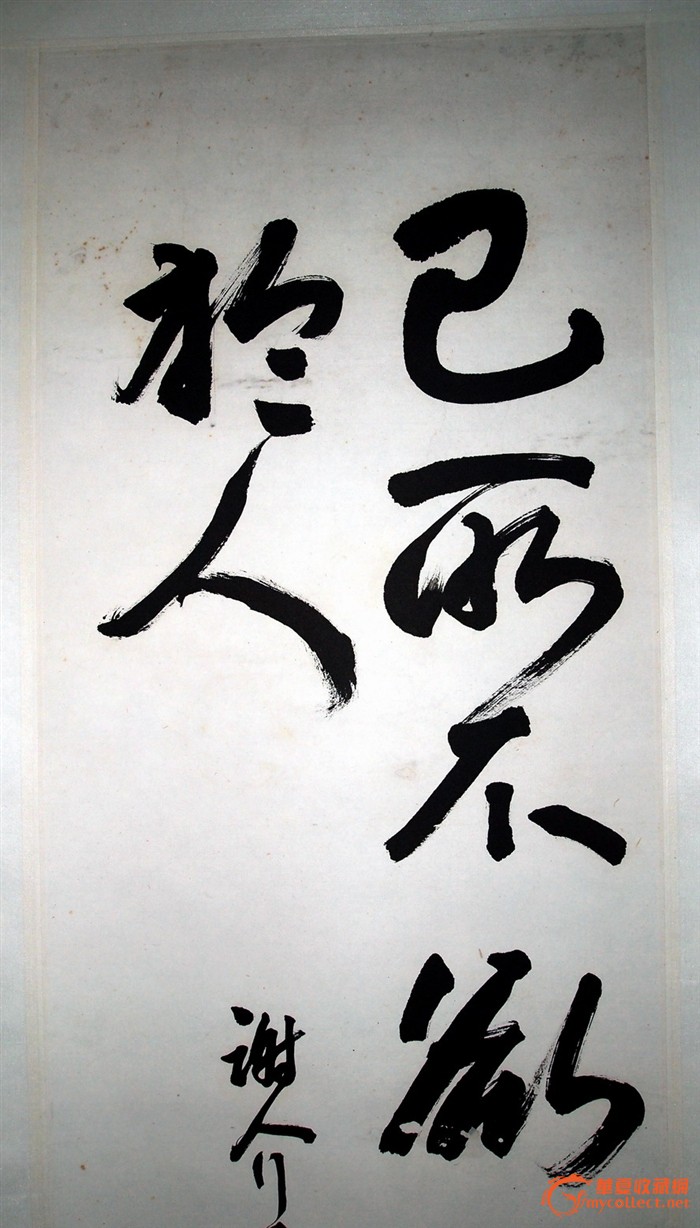 己所不欲
於人
谢介
华夏收藏网
mycollect.net